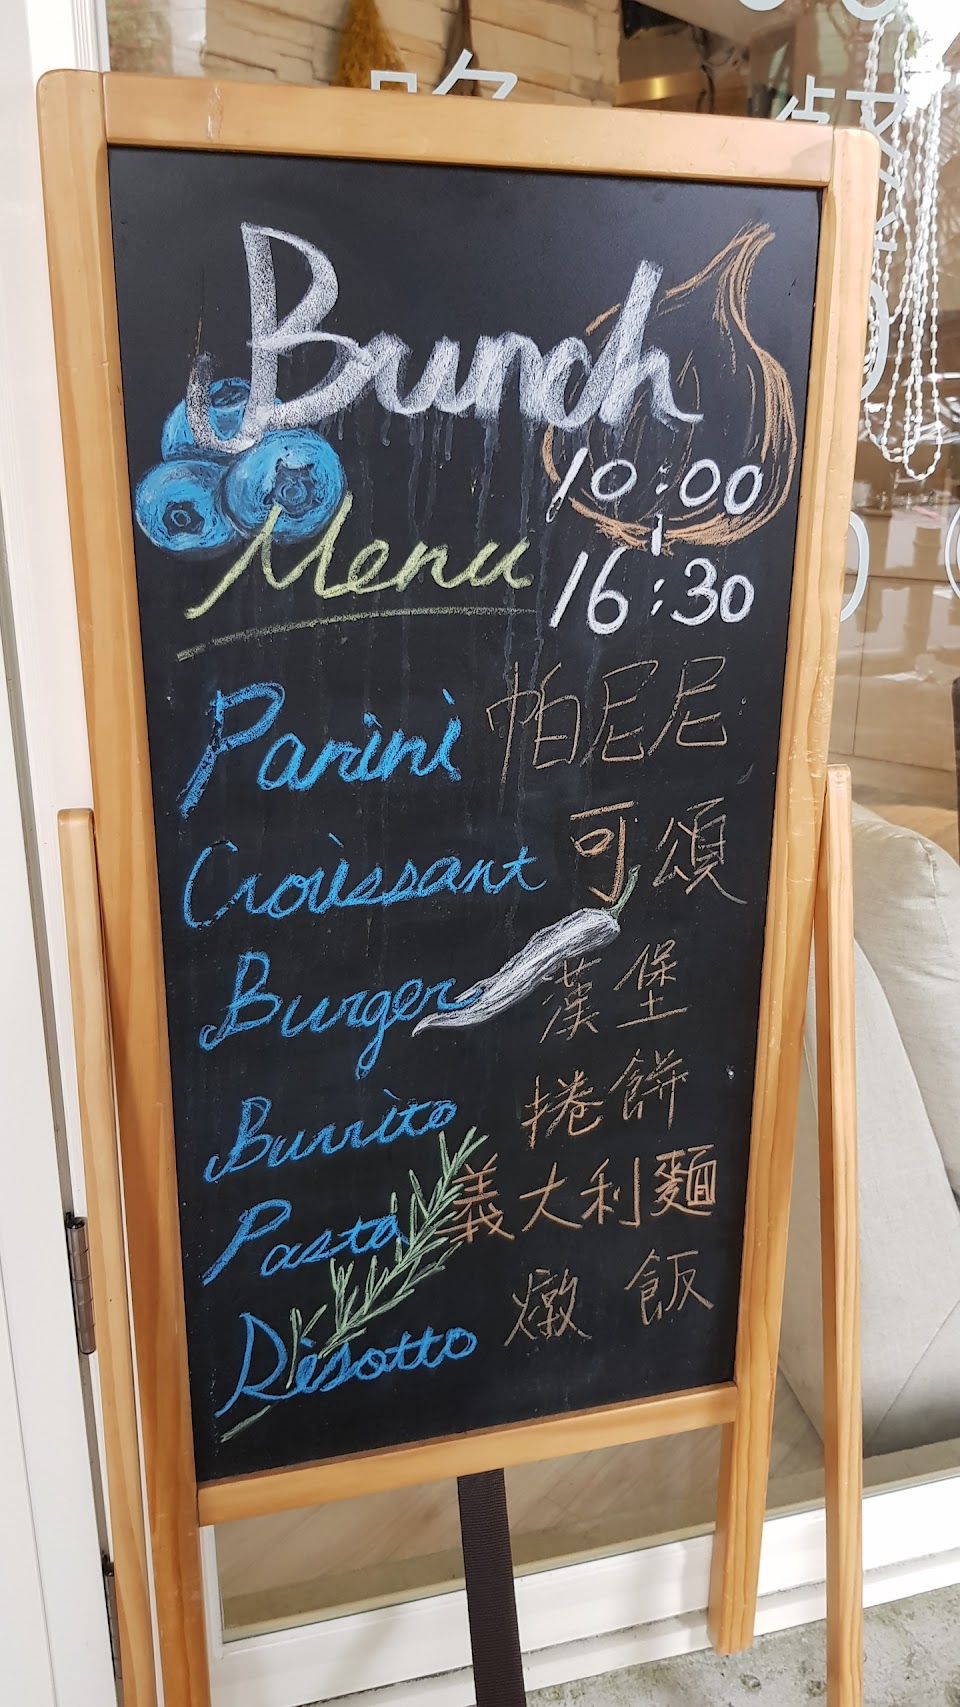 Brunch
10:00
|
16:30
Menu
Panini 帕尼尼
Croissant 可頌
Burger 漢堡
Burrito 捲餅
Pasta 義大利麵
Risotto 燉飯